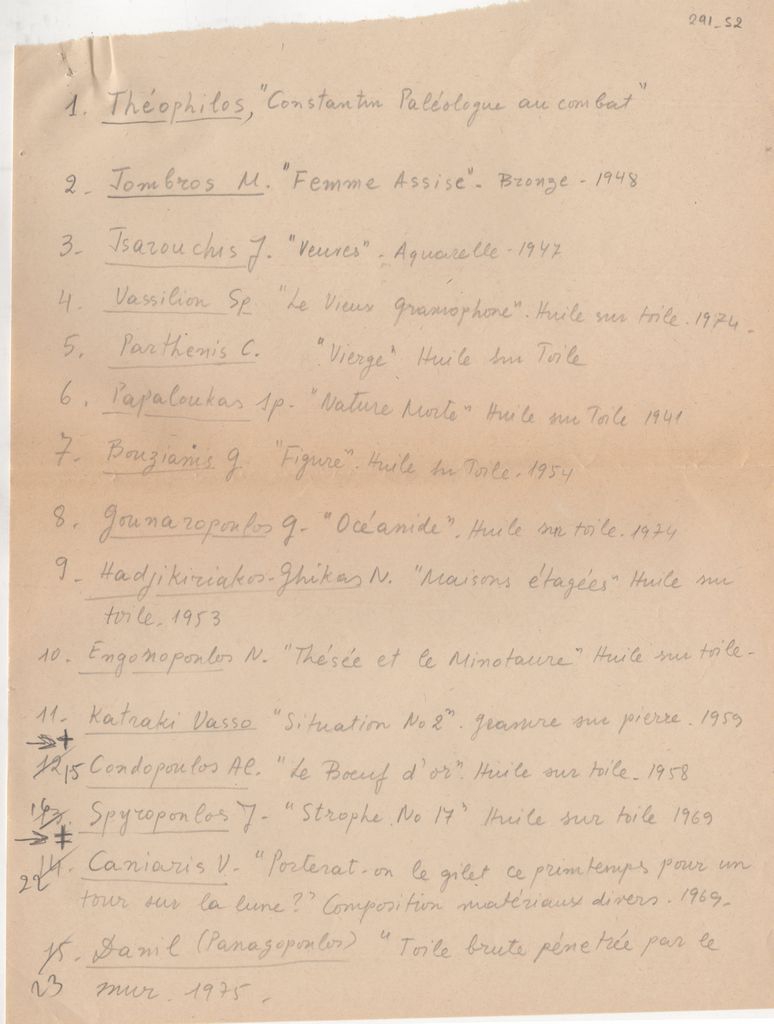 291_52
1. Théophilos, "Constantin Paléologue au combat"
2- Tombros M. "Femme Assise". Bronze - 1948
3- Tsarouchis J. "Veuves". Aquarelle - 1947
4- Vassiliou Sp. "Le Vieux gramophone". Huile sur toile. 1974.
5. Parthenis C. "Vierge" Huile sur Toile
6. Papaloukas Sp. "Nature Morte" Huile sur Toile 1941
7- Bouzianis G. "Figure". Huile sur Toile. 1954
8. Gounaropoulos G. "Océanide". Huile sur toile. 1974
9- Hadjikiriakos-Ghikas N. "Maisons étagées" Huile sur
toile. 1953
10. Engonopoulos N. "Thésée et le Minotaure" Huile sur toile-
11- Katraki Vasso "Situation No 2". Gravure sur pierre. 1959
12, 15 Condopoulos Al. "Le Boeuf d'or". Huile sur toile. 1958
Spyropoulos J- "Strophe No 17" Huile sur toile 1969
14. Caniaris V. "Porterat-on le gilet ce printemps pour un
22 tour sur la lune?" Composition matériaux divers. 1969-
15. Danil (Panagopoulos) "Toile brute pénetrée par le
23 mur. 1975.